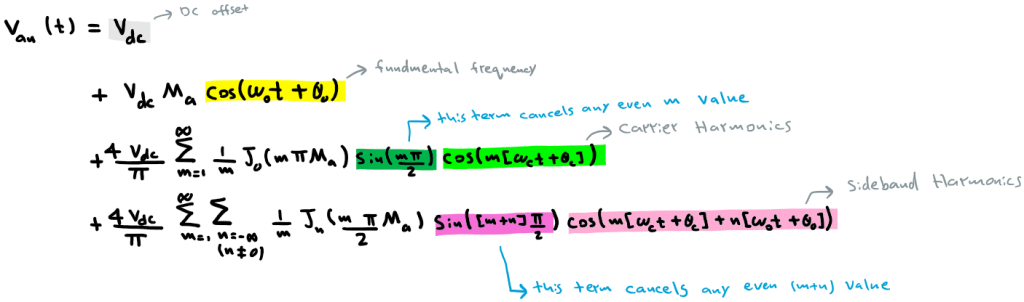 V_an (t) = V_dc → DC offset
+ V_dc M_a cos(ω_o t + θ_o) → fundmental frequency
this term cancels any even m value
+ 4 V_dc / π ∑_{m=1}^{∞} 1/m J_o (m π M_a) sin(mπ/2) cos(m[ω_c t + θ_c]) → Carrier Harmonics
Sideband Harmonics
+ 4 V_dc / π ∑_{m=1}^{∞} ∑_{n=-∞ (n≠0)}^{∞} 1/m J_n (m π/2 M_a) sin([m+n] π/2) cos(m[ω_c t + θ_c] + n[ω_o t + θ_o])
this term cancels any even (m+n) value